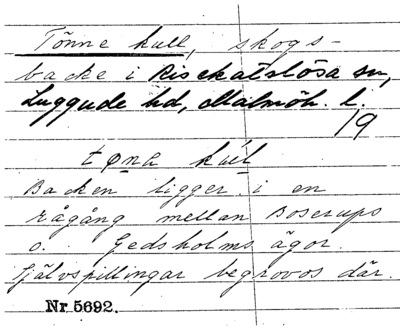 Tönne kull, skogs-
backe i Risekatslösa sn,
Luggude hd, Malmöh. l.
19
tøna kul
Backen ligger i en
rågång mellan Boserups
o. Gedsholms ägor.
Självspillingar begrovos där.
Nr 5692.